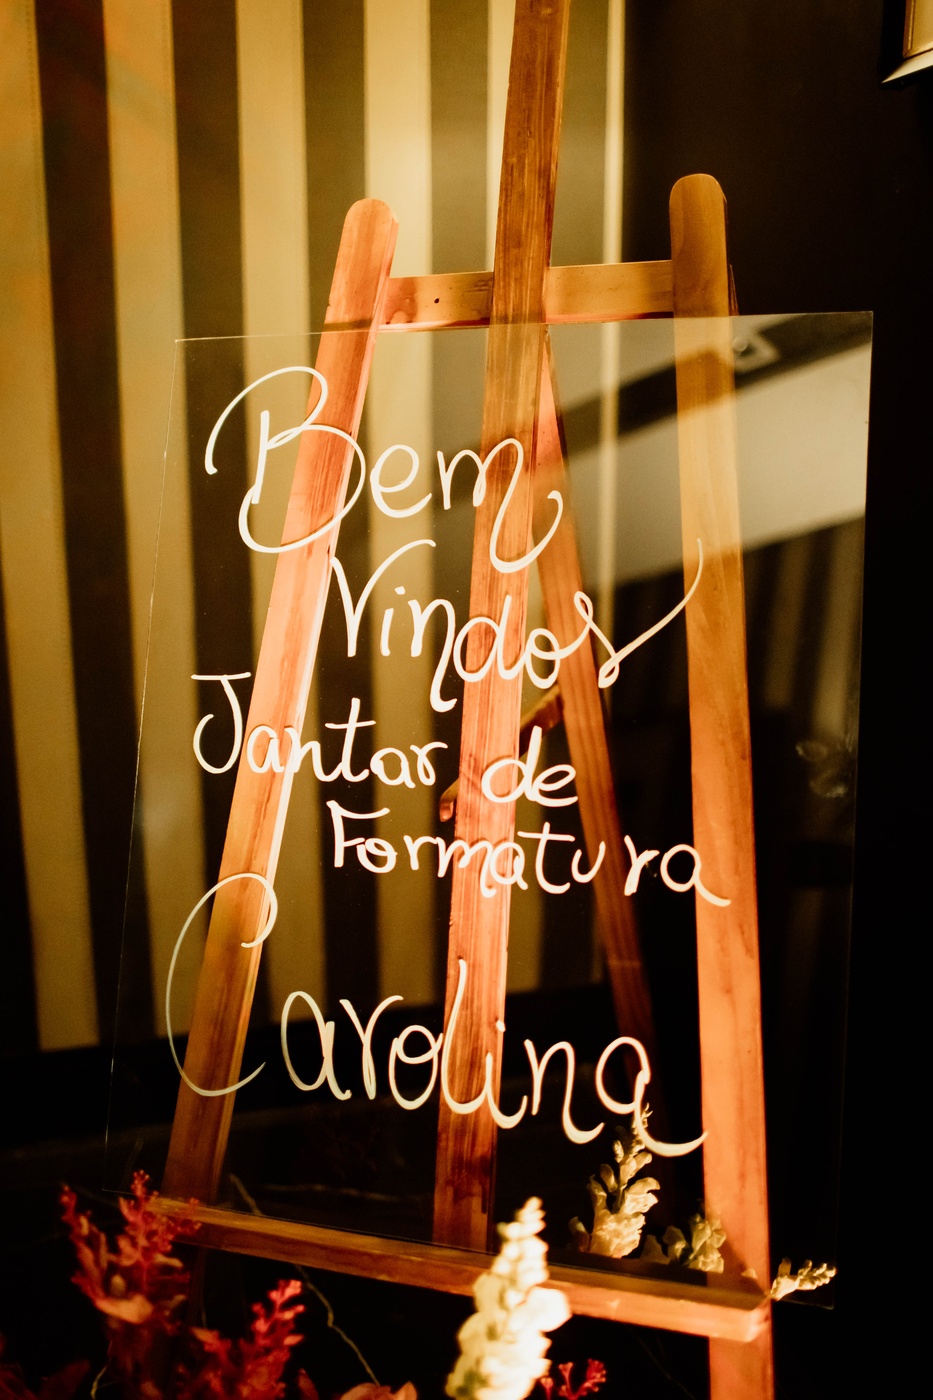 Bem
Vindos
Jantar de
Formatura
Carolina